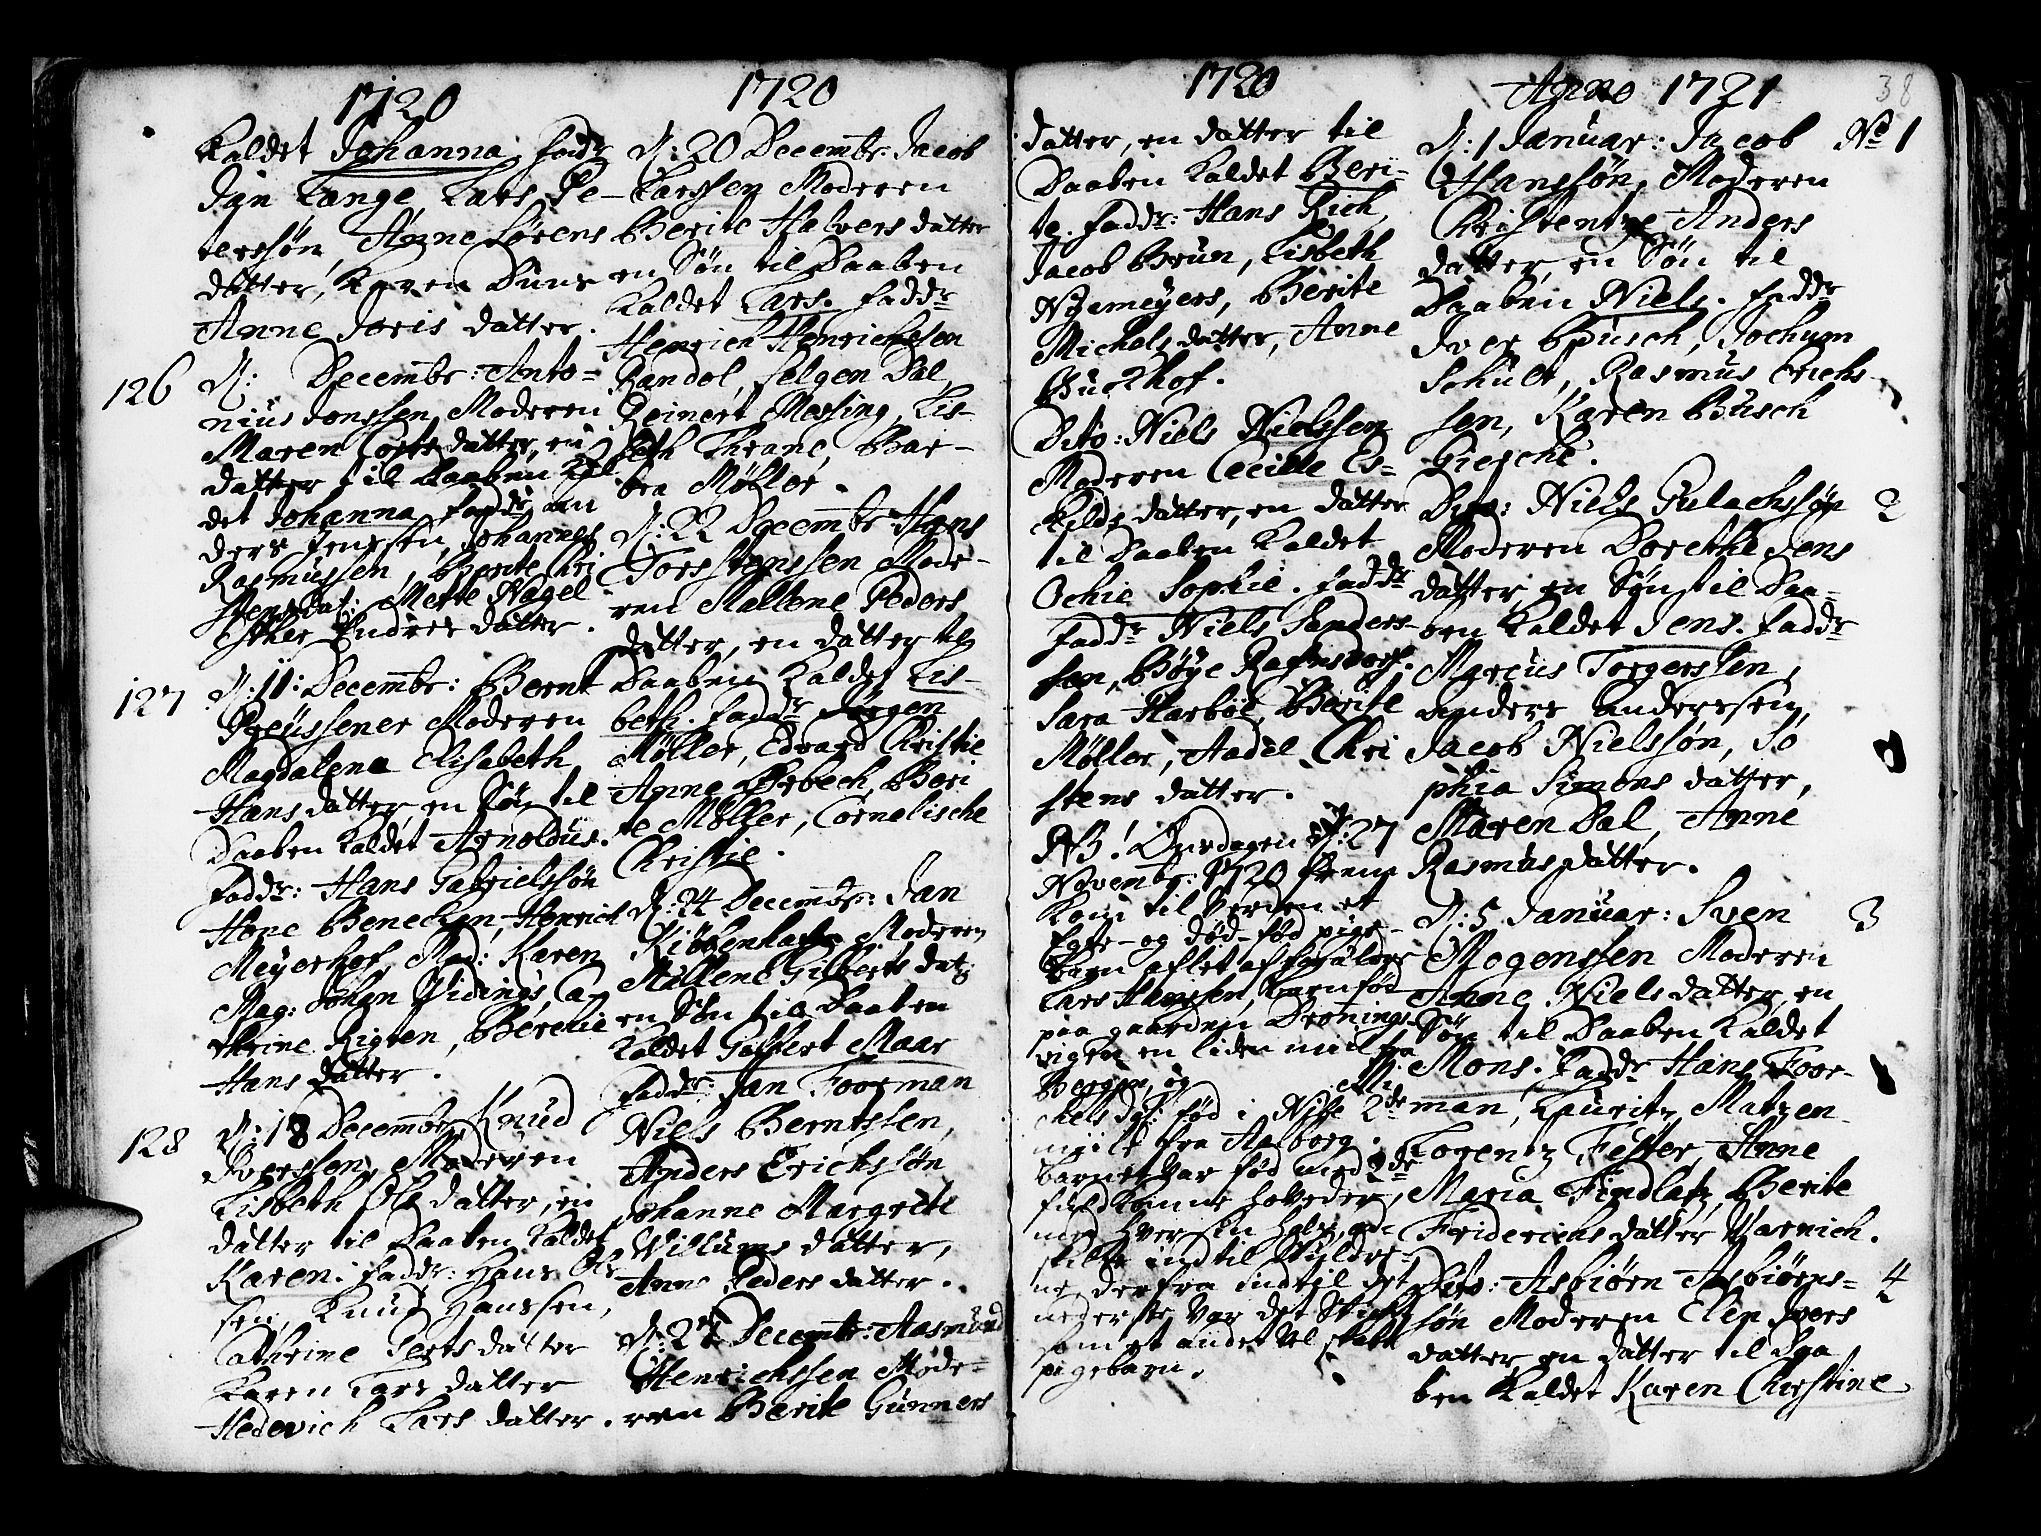 1720
Kaldet Johanna. faddr
Jan Lange, Lars Pe-
terssøn, Anne Sørens
datter, Karen Duus
Anne Joris datter.
126
D: Decembr: Anto-
nius Jonssen, Moderen
Maren datter, en
datter til Daaben Kal
det Johanna. faddr: an
ders Jenssen, Johannes
Rasmussen, Berite Chri
stens dat: Mette Nagel
Esther Endres datter.
127
D: 11: Decembr: Bernt
Preussener Moderen
Magdalena Elisabeth
Hans datter, en Søn til
Daaben Kaldet Arnoldus.
faddr: Hans Gabrielssøn
Hans Benechen, Henrich
Meyerhof, Mad: Karen
Mag: Johan Ca-
thrine Rigven, Berethe
Hans datter.
128
D: 18 Decembr Knud
Iverssen, Moderen
Lisbeth Ols datter, en
datter til Daaben Kaldet
Karen. faddr: Hans Ols
sen, Knud Hanssen,
Cathrine Gerts datter
Karen Lars datter
Hedevich Lars datter.
1720
D: 20 Decembr. Jacob
Larssen Moderen
Berite Halvers datter
en Søn til Daaben
Kaldet Lars. faddr
Henrich Henrichssen
Randol, Sølgen Dal,
Reinert Messing, Lis-
beth Thrane, Bar-
bra Møller.
D: 22 Decembr Hans
Torstenssen Mode-
ren Mallene Peders
datter, en datter til
Daaben Kaldet Lis-
beth. faddr Jørgen
Møller, Edvard Christie
Anne Ørbech, Beri
te Møller, Cornelische
Christie.
D: 24 Decembr: Jan
Kiøbenhafn Moderen
Mallene Gilberts dat:
en Søn til Daaben
Kaldet Gothert Maar
faddr: Jan Foorman
Niels Berntssen,
Anders Erichssøn
Johanne Margrete
Willums datter,
Anne Peders datter.
D: 27 Decembr: Aasmund
Henrichssen Mode-
ren Berite Gunners
1720
datter, en datter til
Daaben Kaldet Beri-
te. faddr: Hans Rich,
Jacob Brun, Lisbeth
Niemeyers, Berite
Michels datter, Anne
Buckhof.
Dito: Niels Nielssen
Moderen Cecille Es-
kilds datter, en datter
til Daaben Kaldet
Ochie Sophie. faddr
faddr Niels Sanders-
søn, Bøye Rafnsdorf.
Sara Harboe, Berite
Møller, Aadel Chri
stens datter.
NB! Onsdagen D: 27
Novembr: 1720 frem
Kom til Verden et
Egte- og død-fød pige-
barn aflet af forældre
Lars Hanssen, barnfød
paa gaarden Dronings-
vigen en liden mil fra
Bergen, og Mi
chels dat: fød i Nibe 2de
miile fra Aalborg.
barnet var fød med 2de
fuldkomne hoveder,
med hver sin hals, ad-
skilte indtil skuldre-
ne, derfra indtil det
nederste var det skikt
som et andet vel skabt
pigebarn.
Anno 1721
38
D: 1 Januar: Jacob No 1
Hanssøn, Moderen
Christentze Anders
datter, en Søn til
Daaben Niels. faddr
Iver Busch, Jochum
Schult, Rasmus Erichs-
sen, Karen Busch
Giesche.
Dito: Niels Gulachssøn 2
Moderen Dorethe Jens
datter en Søn til Daa-
ben Kaldet Jens. faddr
Marcus Torgerssen,
anders anderssen,
Jacob Nielssøn, So
phia Simons datter,
Maren Dal, Anne
Rasmus datter.
D: 5 Januar: Sven 3
Mogenssen Moderen
Anne Niels datter, en
Søn til Daaben Kaldet
Mons. Faddr Hans Foor-
man, Lauritz Matzen
Lorentz Fester, Anne
Maria Findlatz, Berite
Friderichs datter Warnich.
Dito: Asbiørn Asbiørns- 4
søn Moderen Elen Ivers
datter, en datter til Daa
ben Kaldet Karen Christine